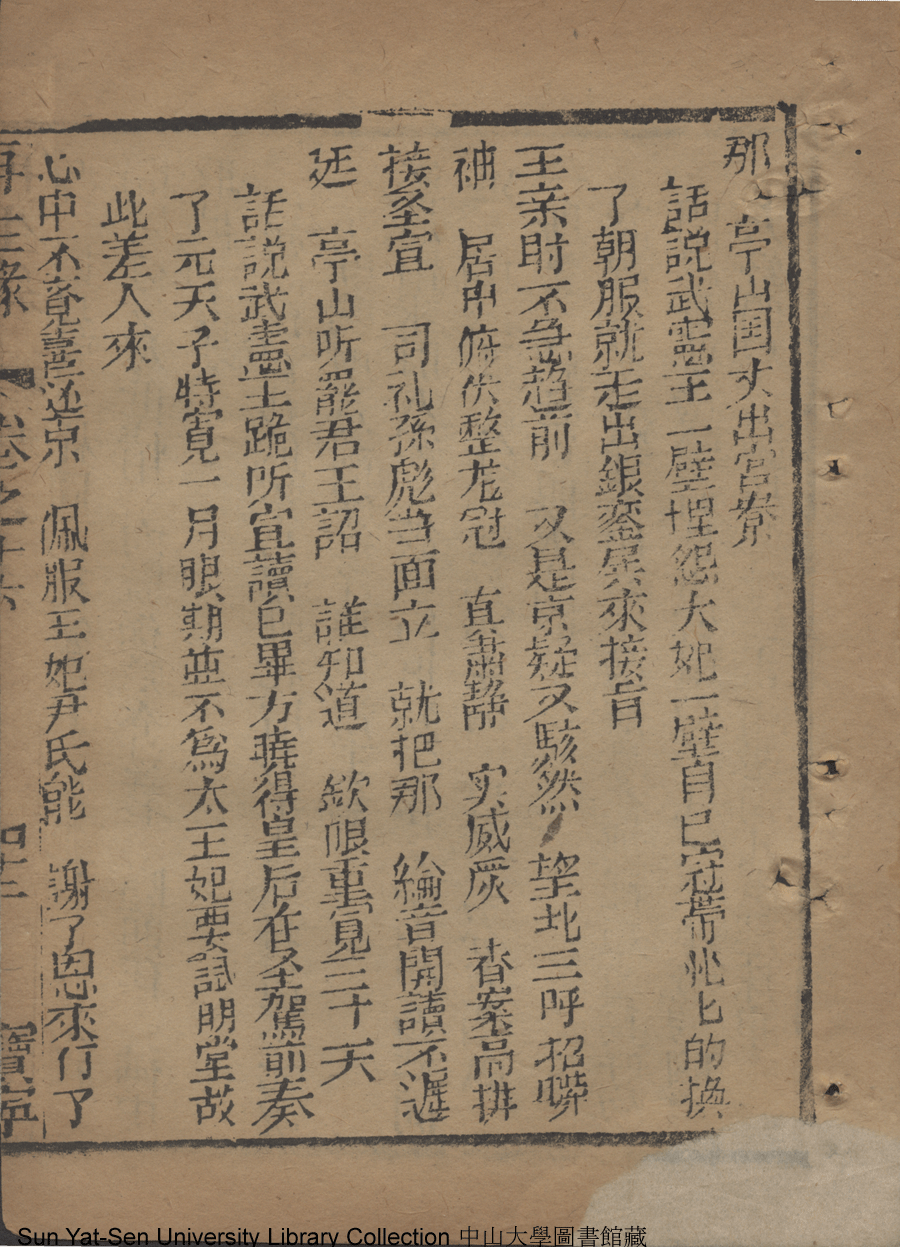 那 亭山国丈出宫寮
話説武憲王一壁埋怨大妃一壁自己冠帶兆匕的換
了朝服就走出銀銮㒷來接旨
王亲財不急趋前 又是京疑又駭然 望北三呼招嚩
袖 居中俯伏整龙冠 直肅静 实威炭 香案高排
接圣宣 司礼孫彪当面立 就把那 綸音開讀不遲
延 亭山听罷君王詔 誰知道 欽限重寬三十天
話説武憲王跪听宣讀已畢方暁得皇后在圣駕前奏
了元天子特寛一月眼期並不爲太王妃要試明堂故
此差人來
心中不覚 佩服王妃尹氏能 謝了恩來行了
再生縁 卷之十六 寶寧
Sun Yat-Sen University Library Collection 中山大學圖書館藏